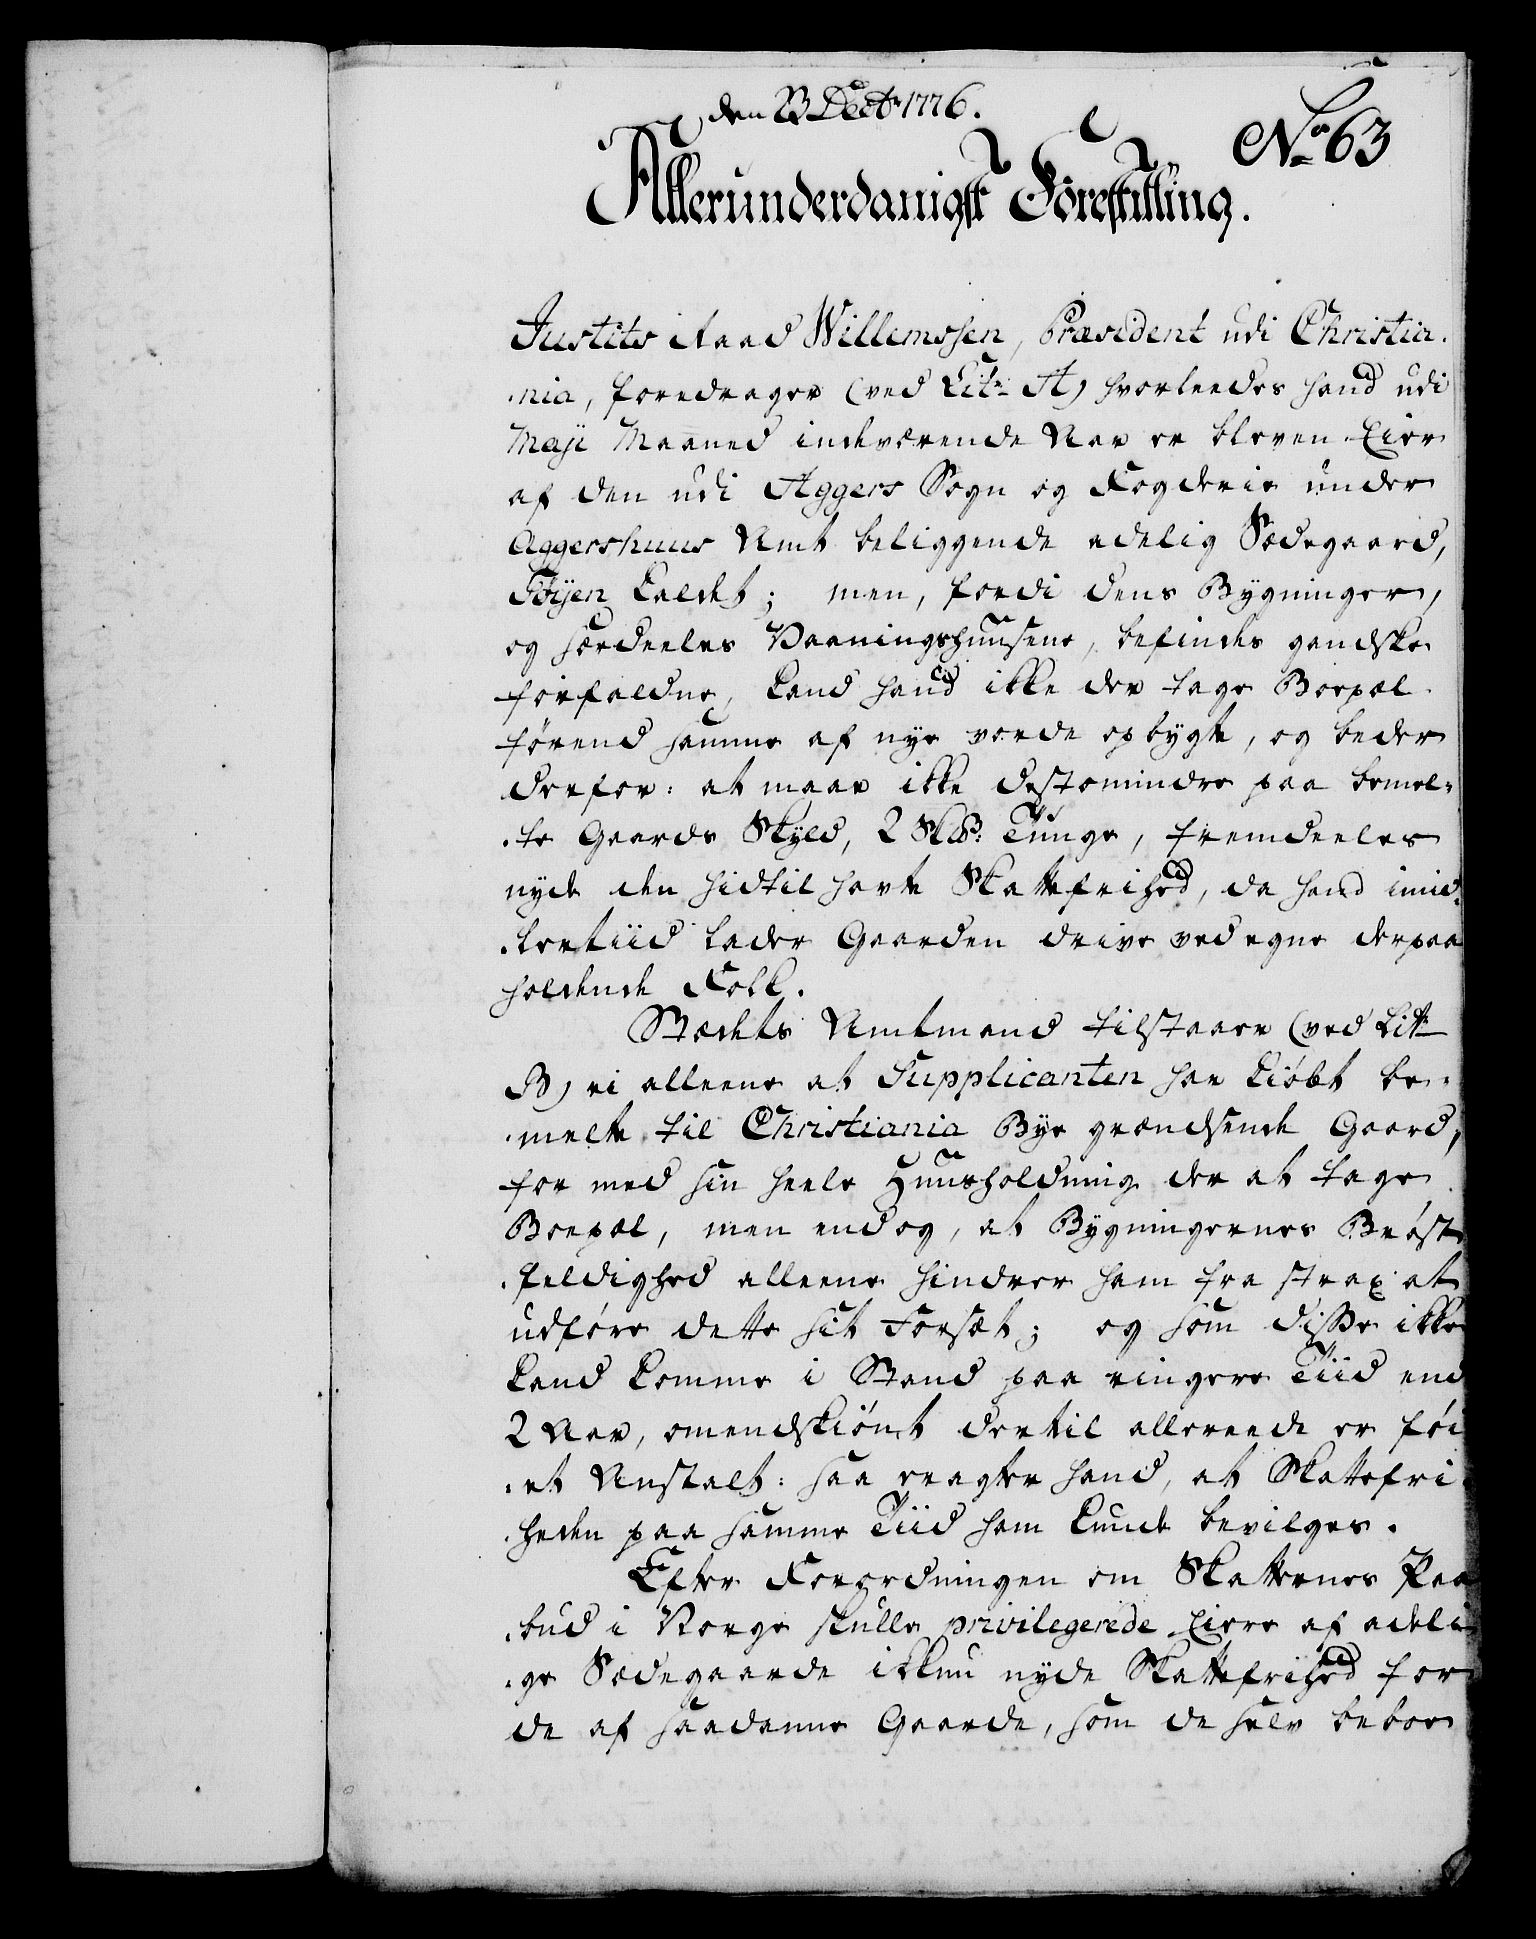 den 23 Dectr 1776.
No 63
Allerunderdanigst Forestilling.
Justits Raad Willemssen, Præsident udi Christia-
-nia, foredrager (ved Litr. A) hvorleedes hand udi
Maji Maaned indeværende Aar er bleven Eier
af den udi Aggers Sogn og Fogderie under
Aggershuus Amt beliggende adelig Sædegaard,
Töyen kaldet; men, fordi dens Bygninger,
og særdeeles Vaaningshuusene, befindes gandske
forfaldne, kand hand ikke der tage Boepæl
förend samme af nye vorde opbygte, og beder
derfor: at maae ikke destomindre paa bemel-
-te Gaards Skyld, 2 Sk℔: Tunge, fremdeeles
nyde den hidtil havte Skattefrihed, da hand imid-
-lertiid lader Gaarden drive ved egne derpaa
holdende Folk.
Stædets Amtmand tilstaaer (ved Litr
B) ei alleene at Supplicanten har kiöbt be-
-melte til Christiania Bye grændsende Gaard,
for med sin heele Huusholdning der at tage
Boepæl, men endog, at Bygningernes Bröst-
-feldighed alleene hindrer ham fra strax at
udföre dette sit Forsæt; og som disse ikke
kand komme i Stand paa ringere Tiid end
2 Aar, omendskiönt dertil allereede er föi-
-et Anstalt: saa eragter hand, at Skattefri-
-heden paa samme Tiid ham kunde bevilges.
Efter Forordningen om Skatternes Paa-
-bud i Norge skulle privilegerede Eiere af adeli-
-ge Sædegaarde ikkun nyde Skattefrihed for
de af saadanne Gaarde, som de selv beboe